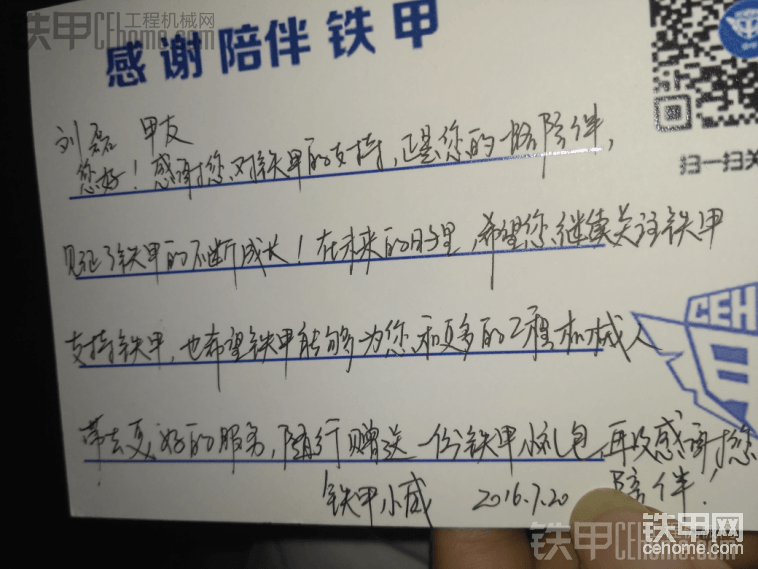 铁甲CE工程机械网
CEhome.com
感谢陪伴铁甲
刘磊 甲友
您好!感谢您对铁甲的支持,正是您的一路陪伴,
见证了铁甲的不断成长!在未来的日子里,希望您继续关注铁甲
支持铁甲,也希望铁甲能够为您和更多的工程机械人
带去更好的服务,随行赠送一份铁甲小礼包,再次感谢您
陪伴!
铁甲小威 2016.7.20
扫一扫关
CEH
铁甲网
cehome.com